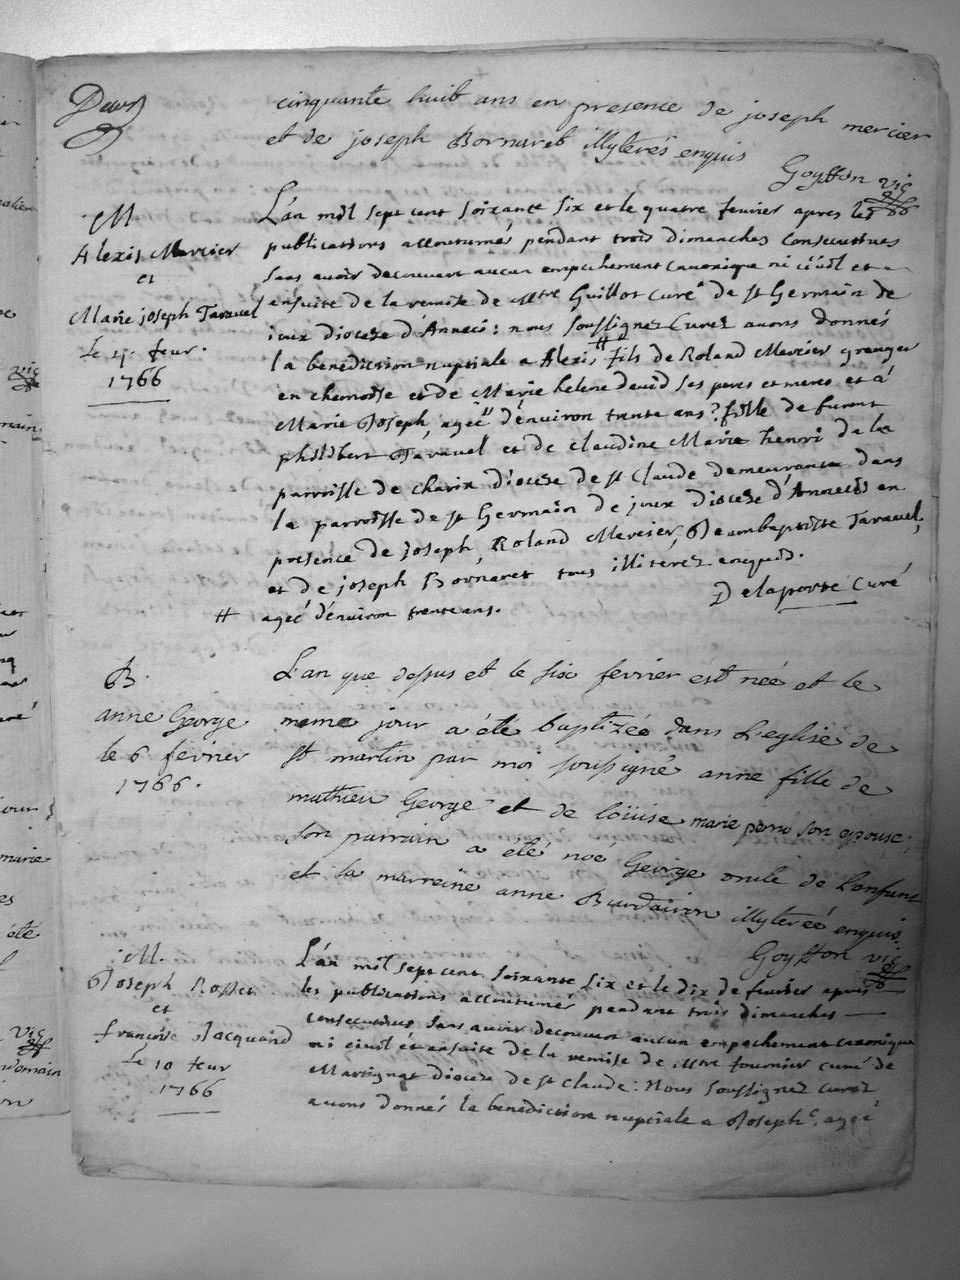 Deux
cinquante huit ans en presence de joseph mercier
et de joseph Bornaret illyterés enquis
Goyffon vic
M
Alexis Mercier
et
Marie joseph Taravel
Le 4e feur.
1766
L'an mil sept cent soixante six et le quatre feurier apres les
publications accoutumés pendant trois dimanches consecutives
sans avoir decouvert aucun empechement canonique ni ciuil et
ensuite de la remise de Mtre Guillot curé de st Germain de
joux Diocese d'Anneci: nous soussignez Curez auons donnés
la benediction nuptiale a Alexis # fils de Roland Mercier granger
en chemoise et de Marie helene david ses peres et meres et á
Marie Joseph, ageé d'énuiron trente ans fille de furent
philibert Taravel et de claudine Marie henri de la
parroisse de charix diocese de st Claude demeurante dans
la parroisse de st Germain de joux Diocese d'Annecis en
presence de joseph, Roland Mercier, Jeambaptiste Taravel,
et de joseph Bornaret tous illiterez enquis.
Delaporte Curé
# ageé d'énuiron trente ans.
B.
anne George
le 6 février
1766.
L'an que dessus et le six février est née et le
meme jour a été baptizée dans l'eglise de
st martin par moi soussigné anne fille de
mathieu George et de loüise marie perro son epouse.
son parrain a été noé George oncle de l'enfant
et la marreine anne Baudairon illyterée enquis.
Goyffon vic
M.
Joseph Rosset
et
françoise Jacquand
Le 10 feur
1766
L'án mil sept cent soixante six et le dix de feurier apres
les publications accoutumés pendant trois dimanches
consecutives sans avoir decouvert aucun empechement canonique
ni ciuil et ensuite de la remise de Mtre fournier curé de
Martignat diocese de st Claude: Nous soussignez Curez
auons donnés la benediction nuptiale a Joseph, ageé